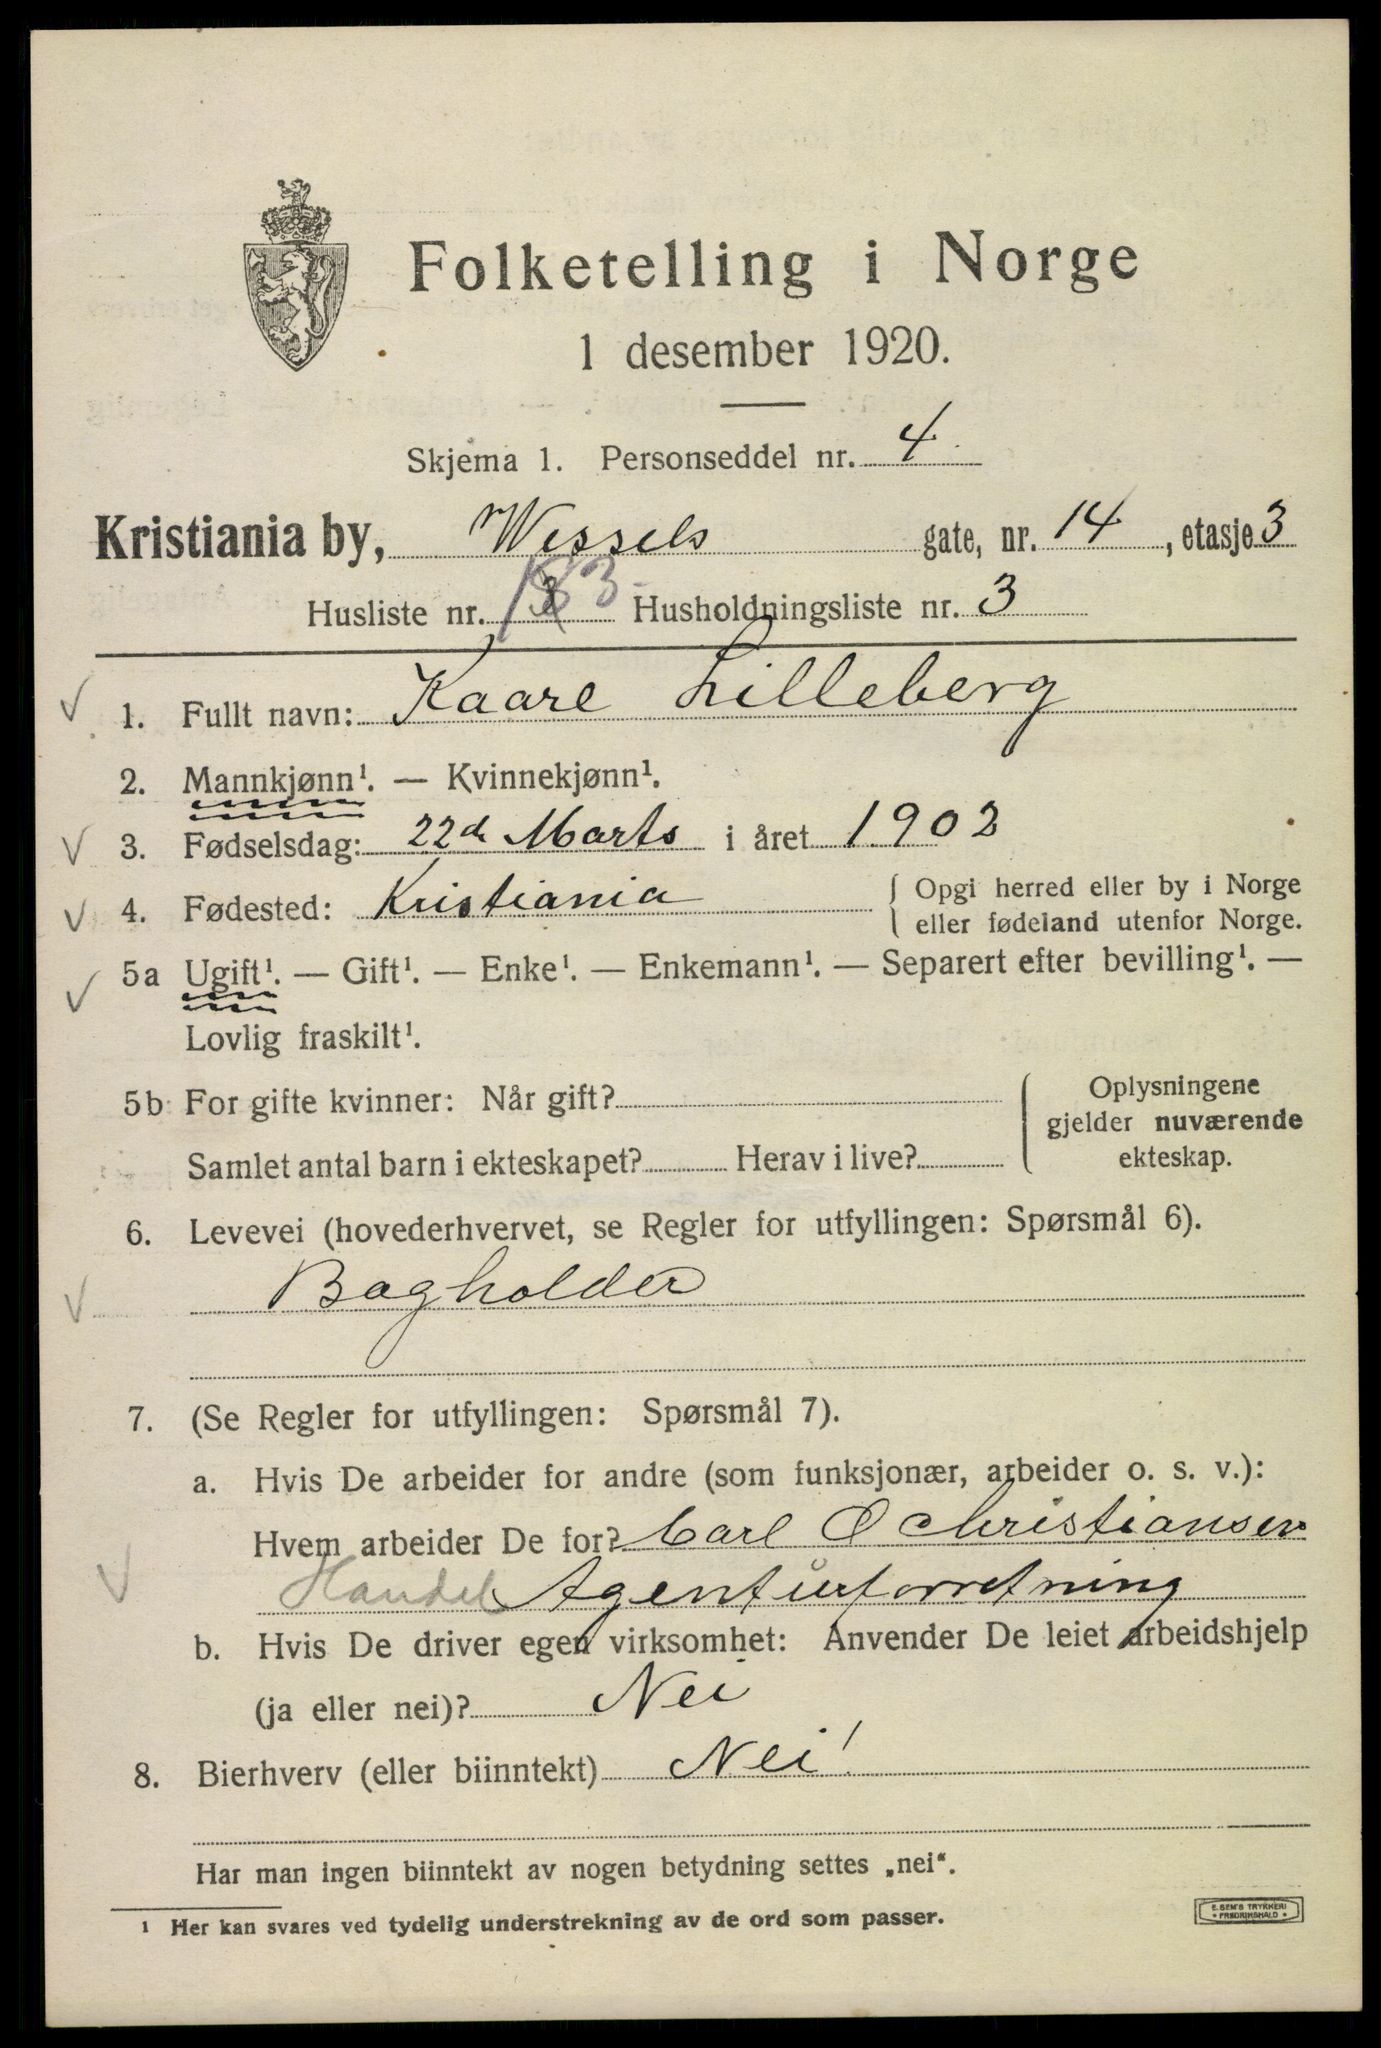 Folketelling i Norge
1 desember 1920.
Skjema 1. Personseddel nr. 4
Kristiania by, Wessels gate, nr. 14, etasje 3
Husliste nr. 183 Husholdningsliste nr. 3
1. Fullt navn: Kaare Lilleberg
2. Mannkjønn¹. — Kvinnekjønn¹.
3. Fødselsdag: 22de Marts i året 1902
4. Fødested: Kristiania { Opgi herred eller by i Norge
eller fødeland utenfor Norge.
5a Ugift¹. — Gift¹. — Enke¹. — Enkemann¹. — Separert efter bevilling¹. —
Lovlig fraskilt¹.
5b For gifte kvinner: Når gift? Oplysningene
gjelder nuværende
Samlet antal barn i ekteskapet? Herav i live? ekteskap.
6. Levevei (hovederhvervet, se Regler for utfyllingen: Spørsmål 6).
Bogholder
7. (Se Regler for utfyllingen: Spørsmål 7).
a. Hvis De arbeider for andre (som funksjonær, arbeider o. s. v.):
Hvem arbeider De for? Carl O Christiansen
Handel Agenturforretning
b. Hvis De driver egen virksomhet: Anvender De leiet arbeidshjelp
(ja eller nei)? Nei
8. Bierhverv (eller biinntekt) Nei!
Har man ingen biinntekt av nogen betydning settes „nei“.
¹ Her kan svares ved tydelig understrekning av de ord som passer.
E. SEM'S TRYKKERI
• FREDRIKSHALD •